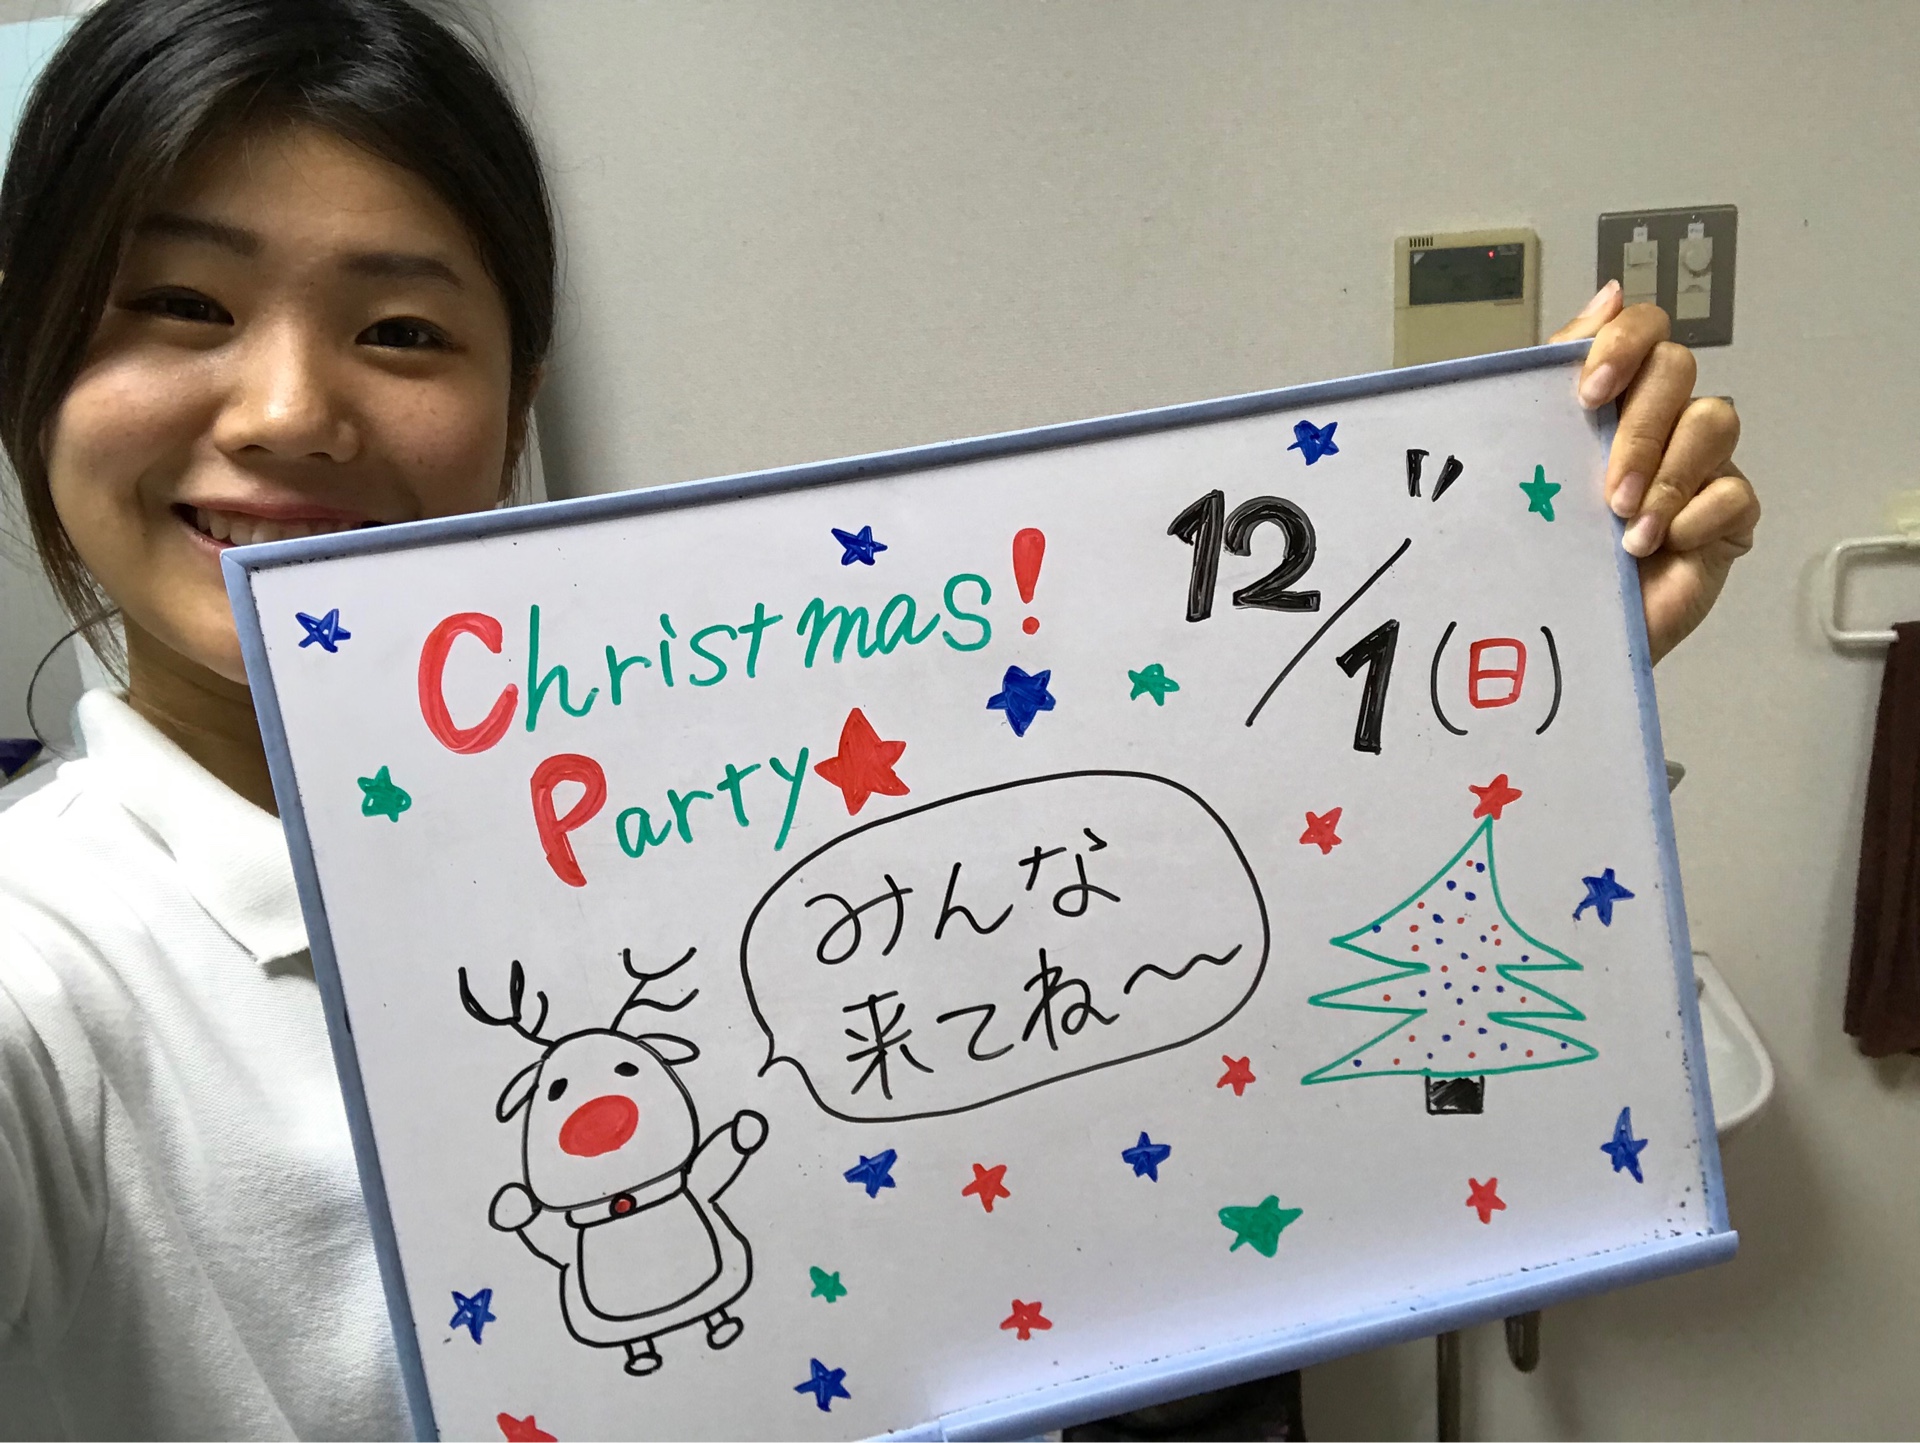 Christmas!
Party★
12/1(日)
みんな
来てね〜